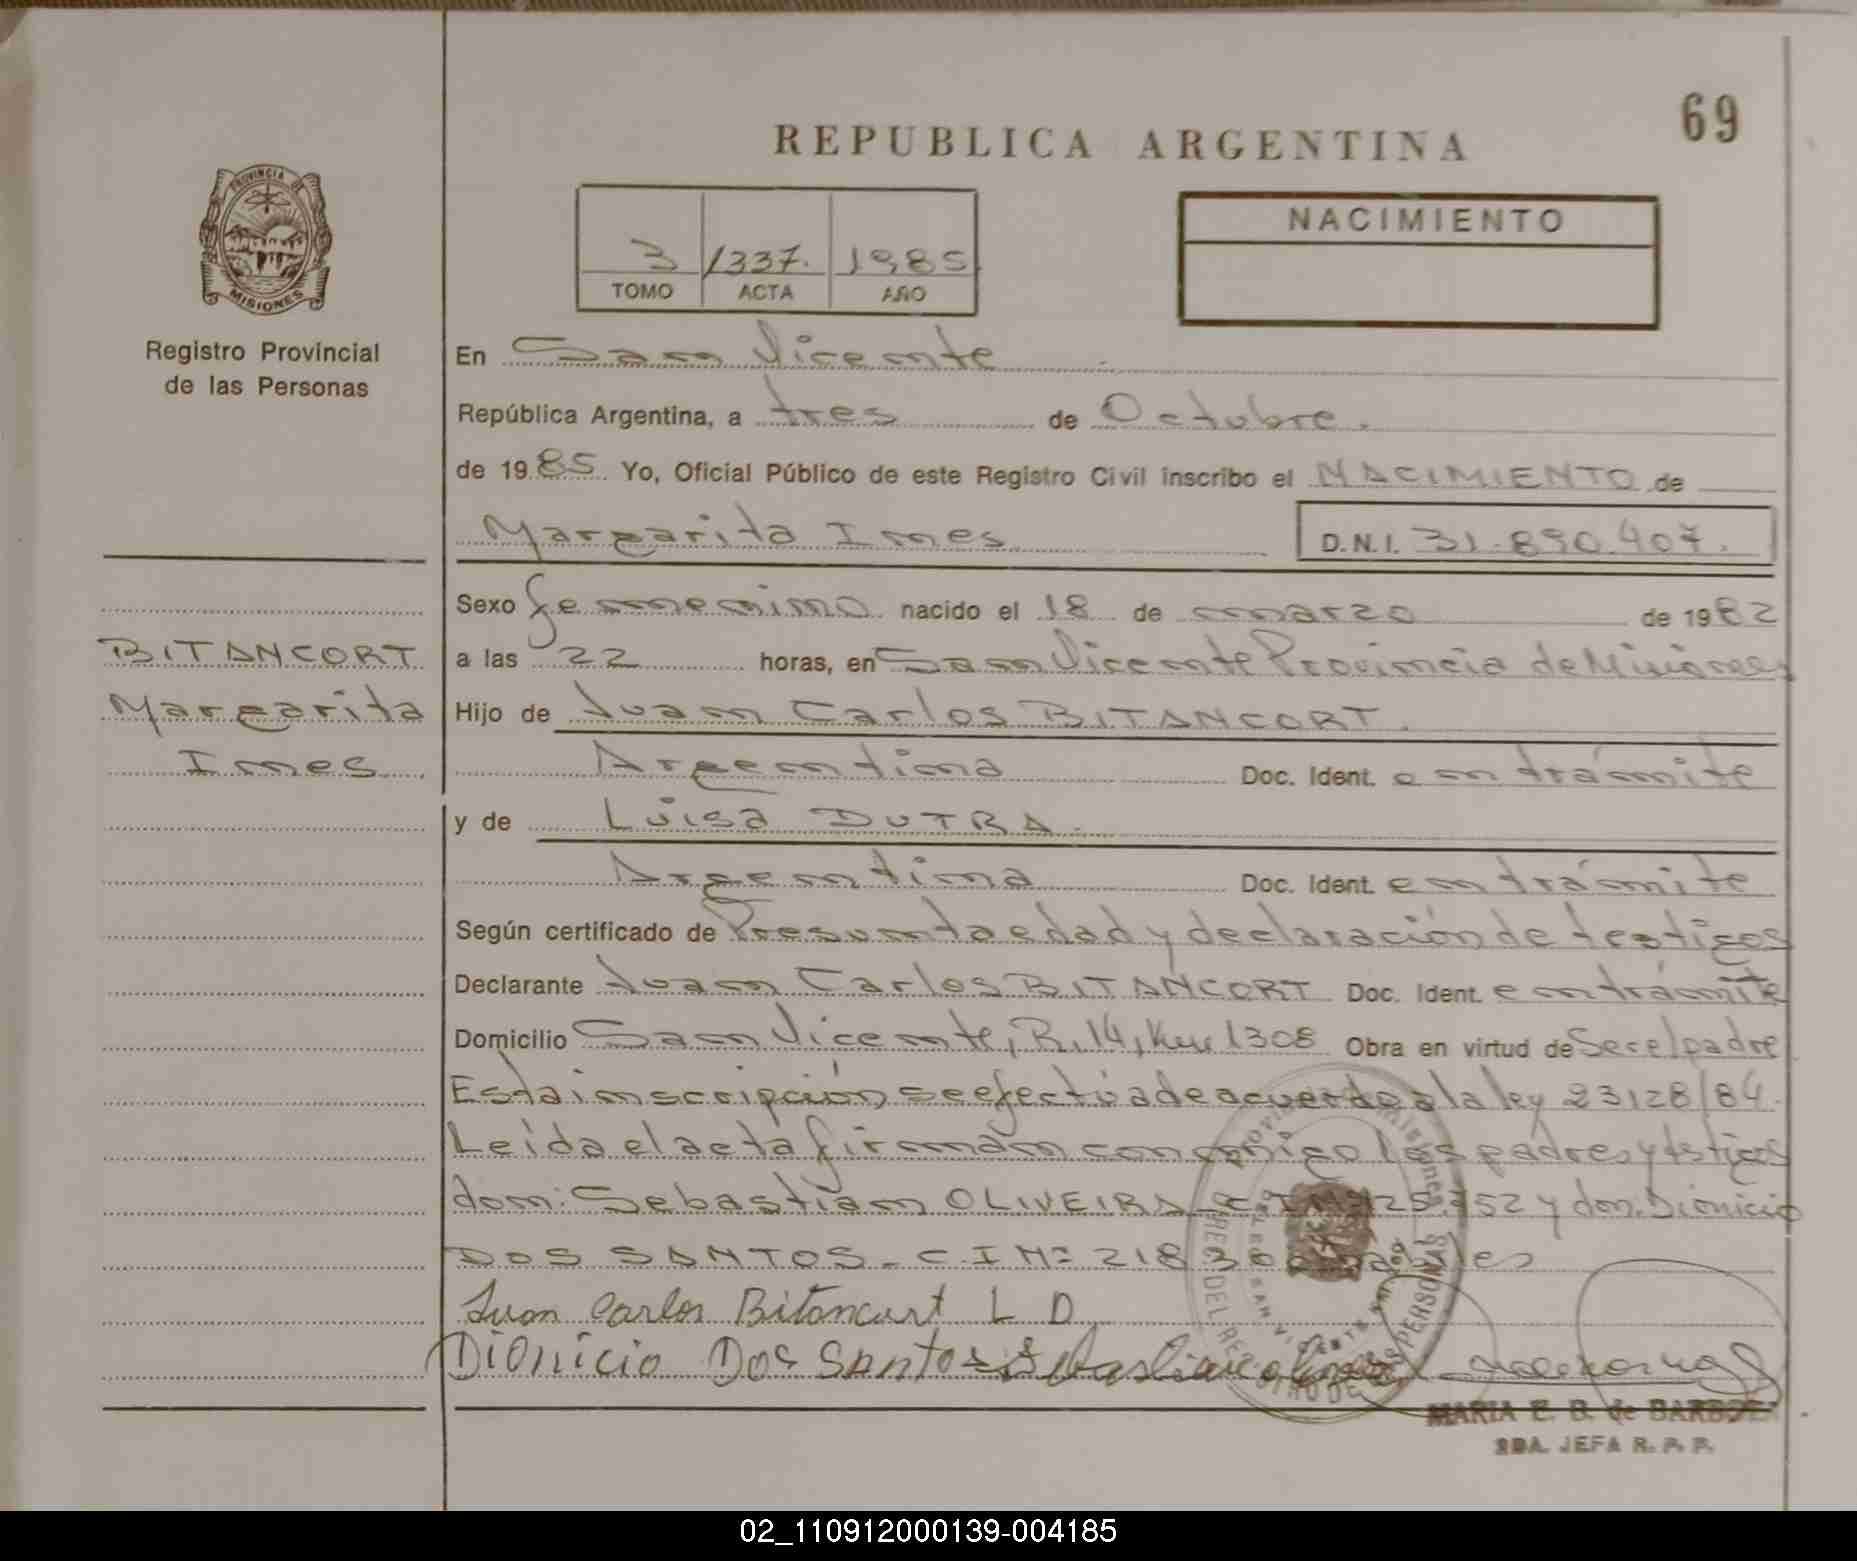 69
REPUBLICA ARGENTINA
PROVINCIA DE
MISIONES
Registro Provincial
de las Personas
3 1337. 1985
TOMO ACTA AÑO
NACIMIENTO
En San Vicente
República Argentina, a tres de Octubre.
de 1985 Yo, Oficial Público de este Registro Civil inscribo el NACIMIENTO de
Margarita Ines D.N.I. 31.890.407.
BITANCORT
Margarita
Ines
Sexo femenino nacido el 18 de marzo de 1982
a las 22 horas, en San Vicente Provincia de Misiones
Hijo de Juan Carlos BITANCORT.
Argentina Doc. Ident. en trámite
y de Luisa DUTRA.
Argentina Doc. Ident. en trámite
Según certificado de Presunta edad y declaración de testigos
Declarante Juan Carlos BITANCORT Doc. Ident. en trámite
Domicilio San Vicente, R.14, Km 1308 Obra en virtud de Ser el padre
Esta inscripción se efectúa de acuerdo a la ley 23128/84.
Leída el acta firman conmigo los padres y testigos
don: Sebastian OLIVEIRA y don. Dionicio
DOS SANTOS - C.I Nº
Juan Carlos Bitancurt L D
Dionicio Dos Santos
MARIA E. B. de BARBOZA
SDA. JEFA R. P. P.
02_110912000139-004185